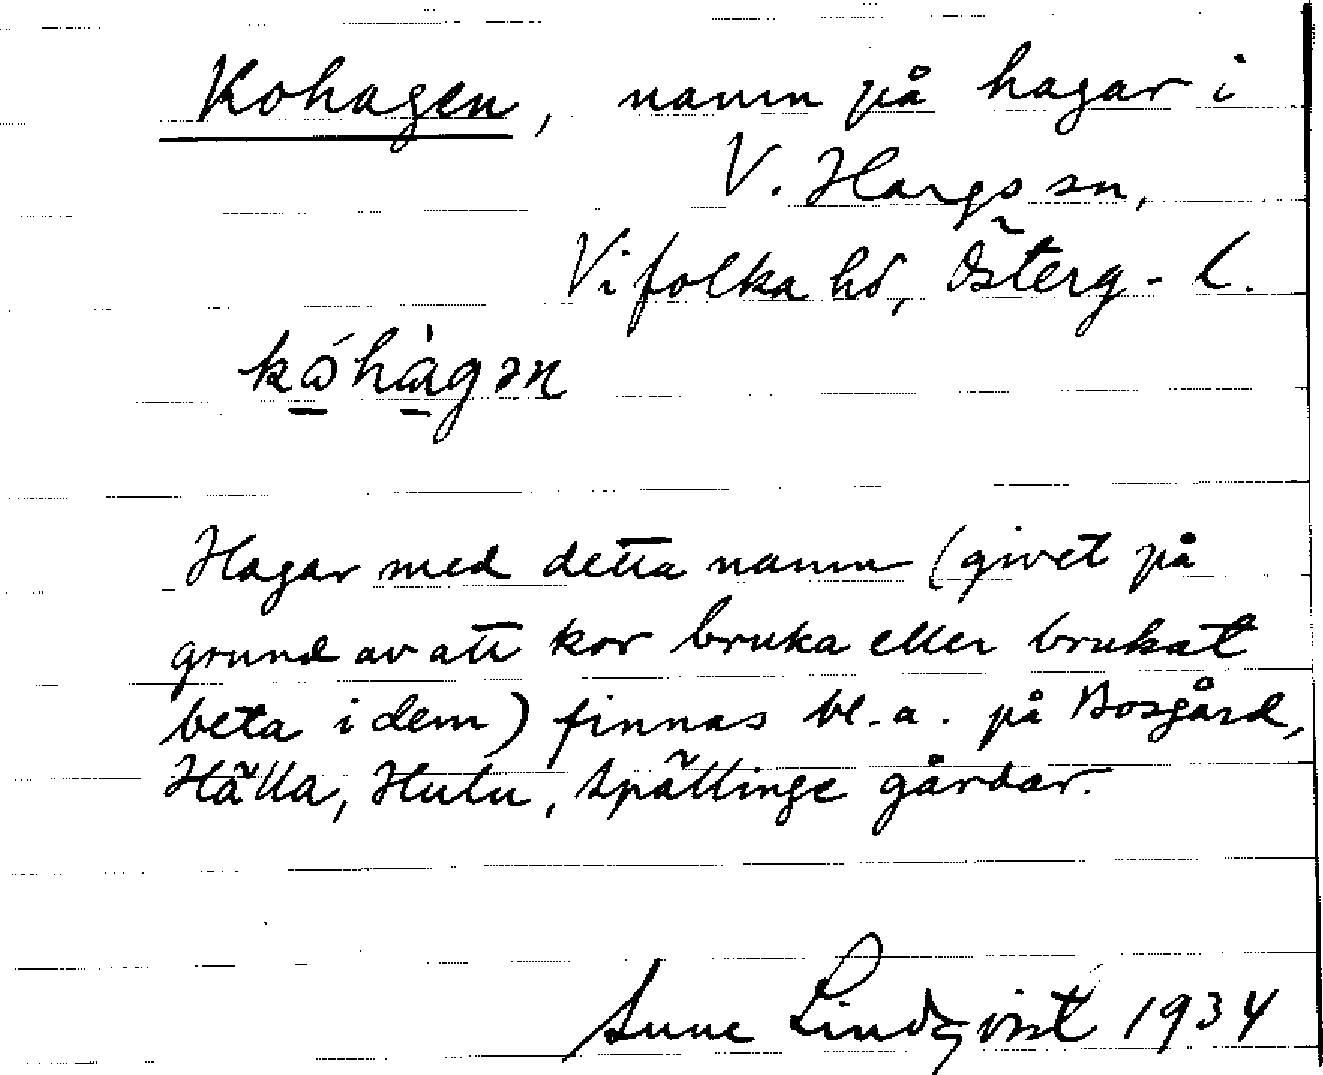 Kohagen, namn på hagar i
V. Hargs sn,
Vifolka hd, Österg. L.
kóhàgən
Hagar med detta namn (givet på
grund av att kor bruka eller brukat
beta i dem) finnas bl.a. på Bosgård,
Hälla, Hulu, Spällinge gårdar.
Sune Lindqvist 1934